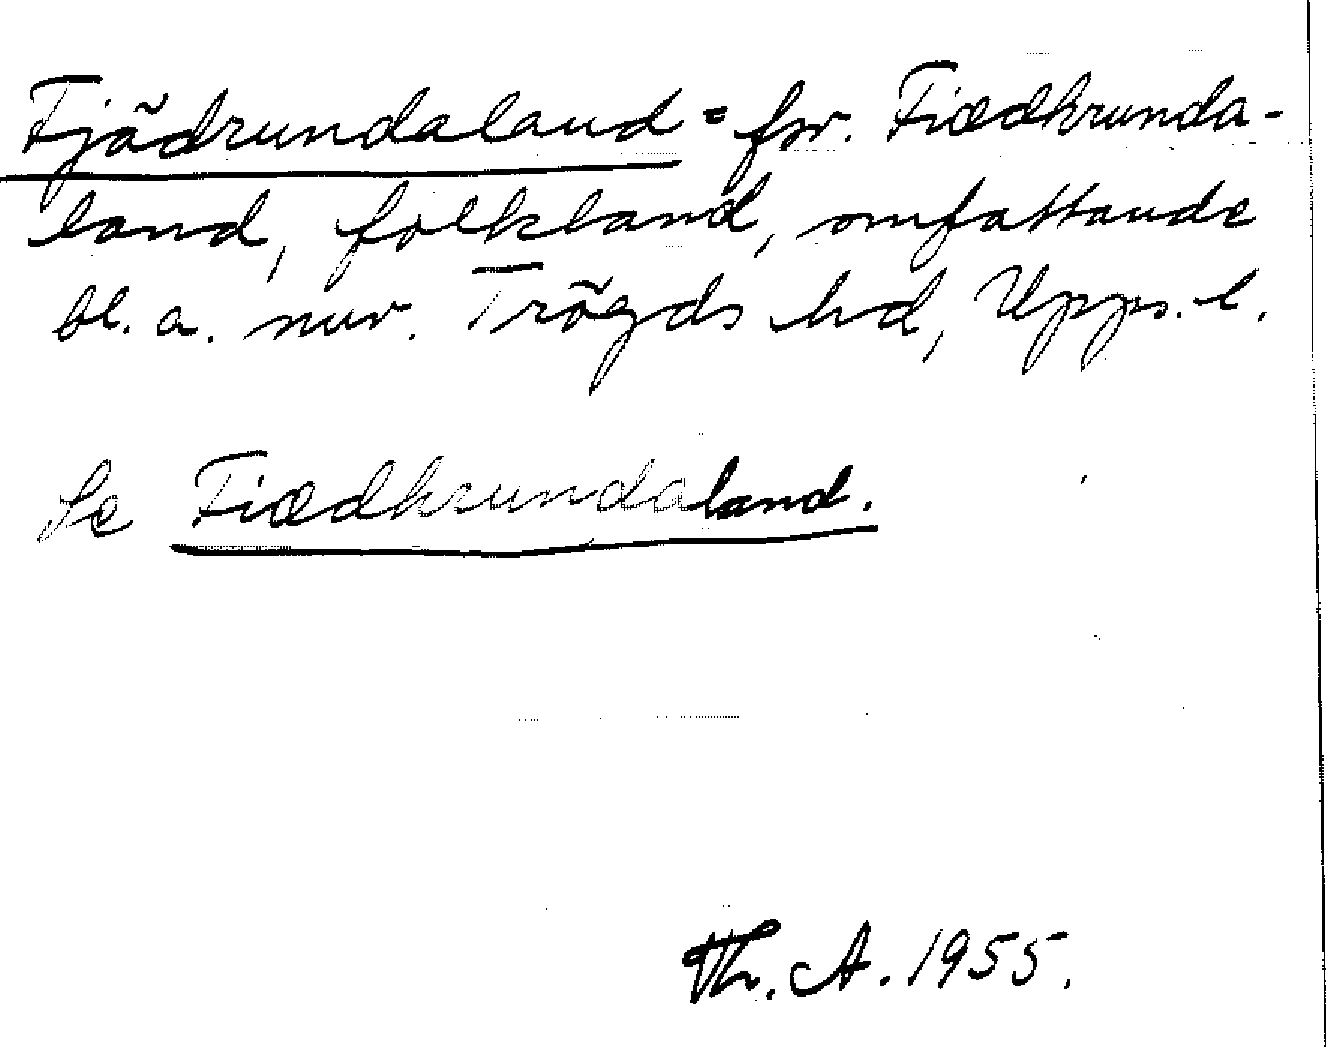 Fjädrundaland = fsv. Fiædhrunda-
land, folkland, omfattande
bl. a. nuv. Trögds hd, Upps. l.
Se Fiædhrundaland.
Th. A. 1955.